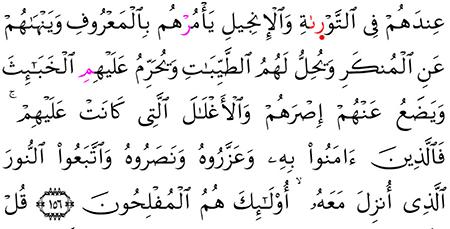 عِندَهُمْ فِى ٱلتَّوْرىٰةِ وَٱلْإِنجِيلِ يَأْمُرْهُم بِٱلْمَعْرُوفِ وَيَنْهَىٰهُمْ
عَنِ ٱلْمُنكَرِ وَيُحِلُّ لَهُمُ ٱلطَّيِّبَٰتِ وَيُحَرِّمُ عَلَيْهِمِ ٱلْخَبَٰٓئِثَ
وَيَضَعُ عَنْهُمْ إِصْرَهُمْ وَٱلْأَغْلَٰلَ ٱلَّتِى كَانَتْ عَلَيْهِمْ ۚ
فَٱلَّذِينَ ءَامَنُوا۟ بِهِۦ وَعَزَّرُوهُ وَنَصَرُوهُ وَٱتَّبَعُوا۟ ٱلنُّورَ
ٱلَّذِى أُنزِلَ مَعَهُۥ ۙ أُو۟لَٰٓئِكَ هُمُ ٱلْمُفْلِحُونَ ١٥٦ قُلْ